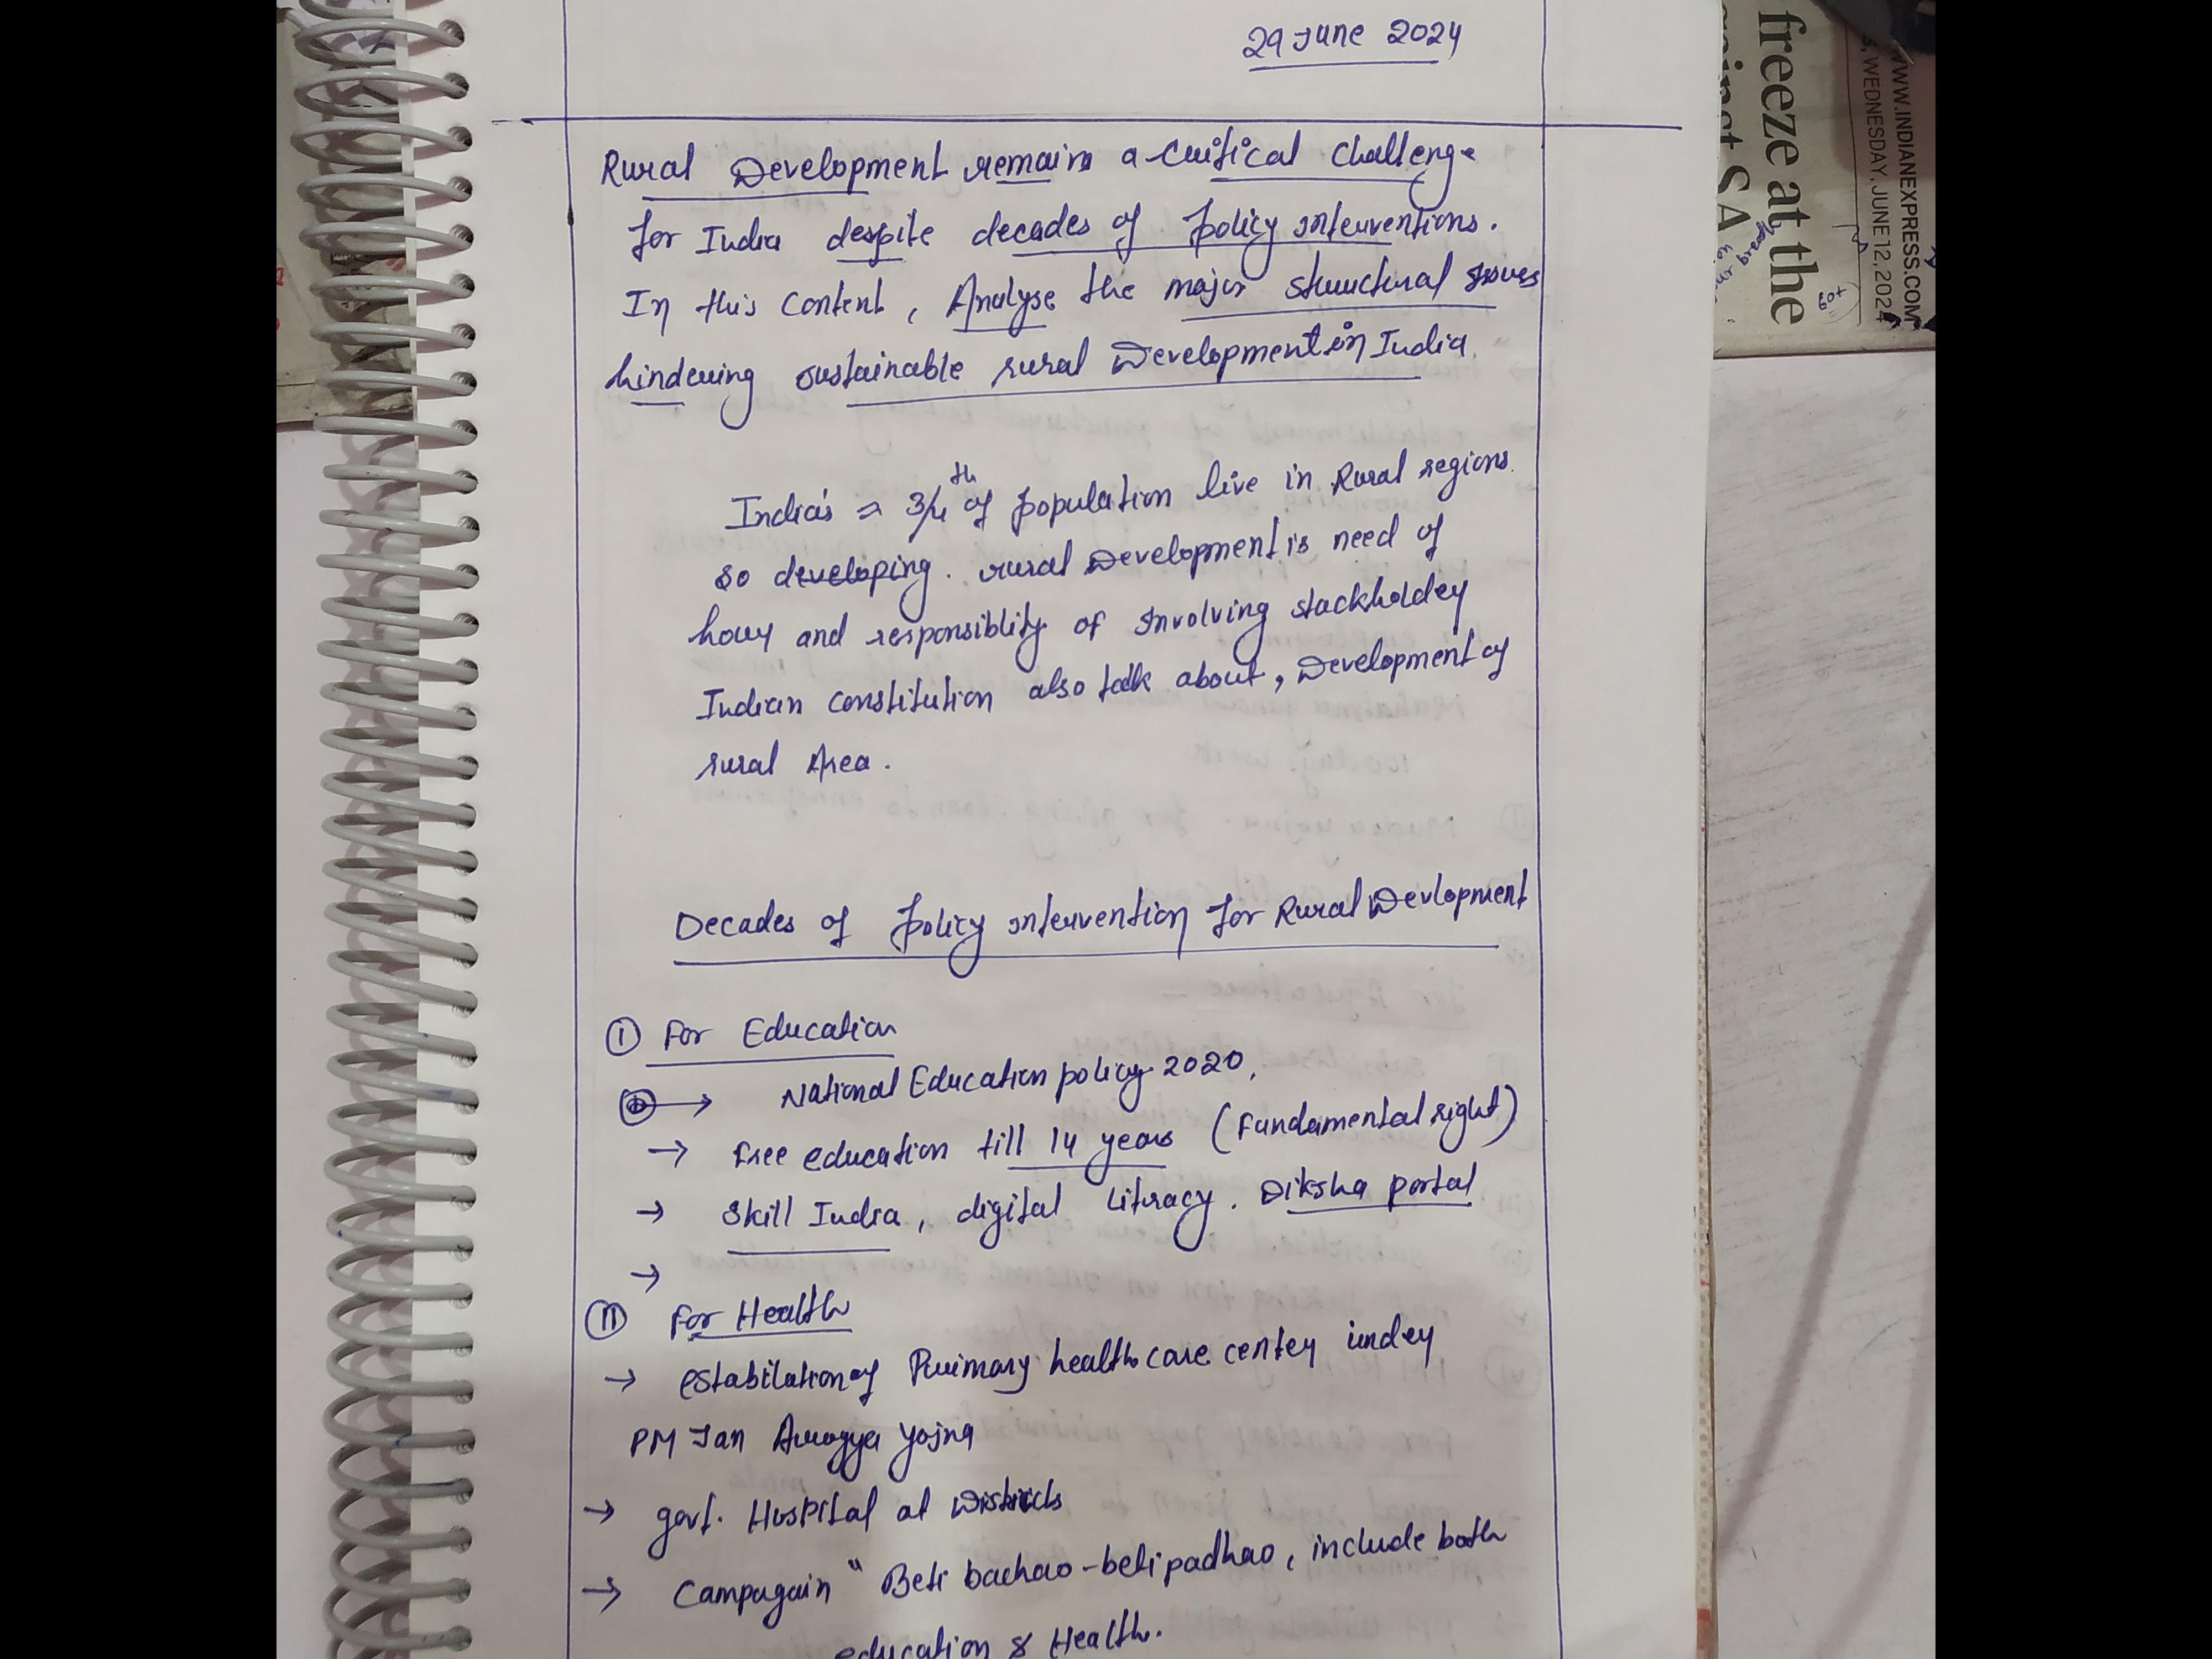 29 June 2024
Rural Development remains a critical challenge
for India despite decades of policy interventions.
In this content, Analyse the major structural issues
hindering sustainable rural Development in India
India's ≈ 3/4th of population live in Rural regions.
so developing. rural Development is need of
hour and responsiblity of involving stackholder
Indian constitution also talk about, Development of
rural Area.
Decades of policy intervention for Rural Devlopment
① For Education
→ National Education policy 2020,
→ free education till 14 years (Fundamental right)
→ Skill India, digital literacy. Diksha portal
→
② For Health
→ estabilation of Primary healthcare center under
PM Jan Arogya Yojna
→ govt. Hospital at Districts
→ Campagain "Beti bachao-beti padhao, include both
education & Health.
freeze at the
WWW.INDIANEXPRESS.COM
WEDNESDAY, JUNE 12, 2024